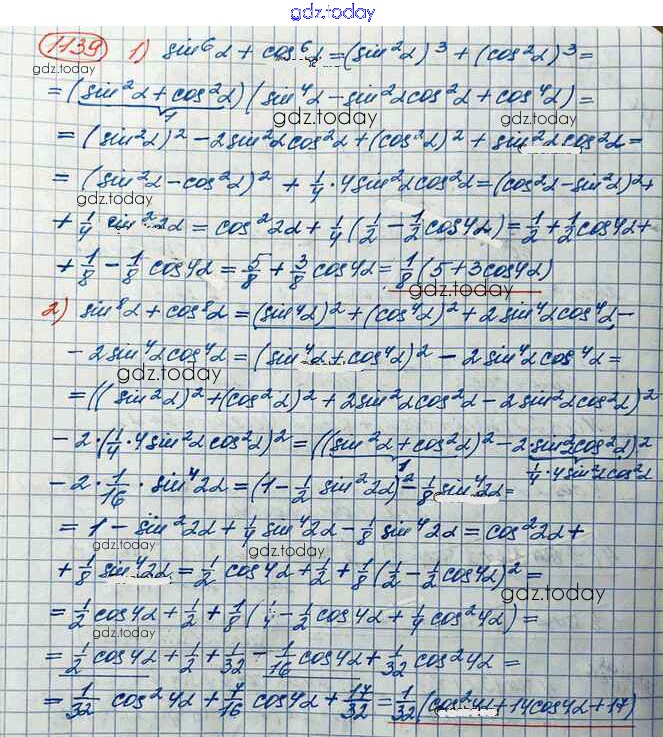 gdz.today
1139 1) sin⁶α + cos⁶α = (sin²α)³ + (cos²α)³ =
gdz.today
= (sin²α + cos²α)(sin⁴α - sin²αcos²α + cos⁴α) =
1
gdz.today
= (sin²α)² - 2sin²αcos²α + (cos²α)² + sin²αcos²α =
= (sin²α - cos²α)² + 1/4 · 4sin²αcos²α = (cos²α - sin²α)² +
gdz.today
+ 1/4 sin²2α = cos²2α + 1/4 (1/2 - 1/2 cos4α) = 1/2 + 1/2 cos4α +
gdz.today
+ 1/8 - 1/8 cos4α = 5/8 + 3/8 cos4α = 1/8 (5 + 3cos4α)
gdz.today
2) sin⁸α + cos⁸α = (sin⁴α)² + (cos⁴α)² + 2sin⁴αcos⁴α -
- 2sin⁴αcos⁴α = (sin⁴α + cos⁴α)² - 2sin⁴αcos⁴α =
gdz.today
= ((sin²α)² + (cos²α)² + 2sin²αcos²α - 2sin²αcos²α)²
- 2·(1/4 · 4sin²αcos²α)² = ((sin²α + cos²α)² - 2·sin²αcos²α)²
1
1/4 · 4sin²αcos²α
- 2 · 1/16 · sin⁴2α = (1 - 1/2 sin²2α)² - 1/8 sin⁴2α =
= 1 - sin²2α + 1/4 sin⁴2α - 1/8 sin⁴2α = cos²2α +
gdz.today
gdz.today
+ 1/8 sin⁴2α = 1/2 cos4α + 1/2 + 1/8 (1/2 - 1/2 cos4α)² =
= 1/2 cos4α + 1/2 + 1/8 (1/4 - 1/2 cos4α + 1/4 cos²4α) =
gdz.today
= 1/2 cos4α + 1/2 + 1/32 - 1/16 cos4α + 1/32 cos²4α =
= 1/32 cos²4α + 7/16 cos4α + 17/32 = 1/32 (cos²4α + 14cos4α + 17)